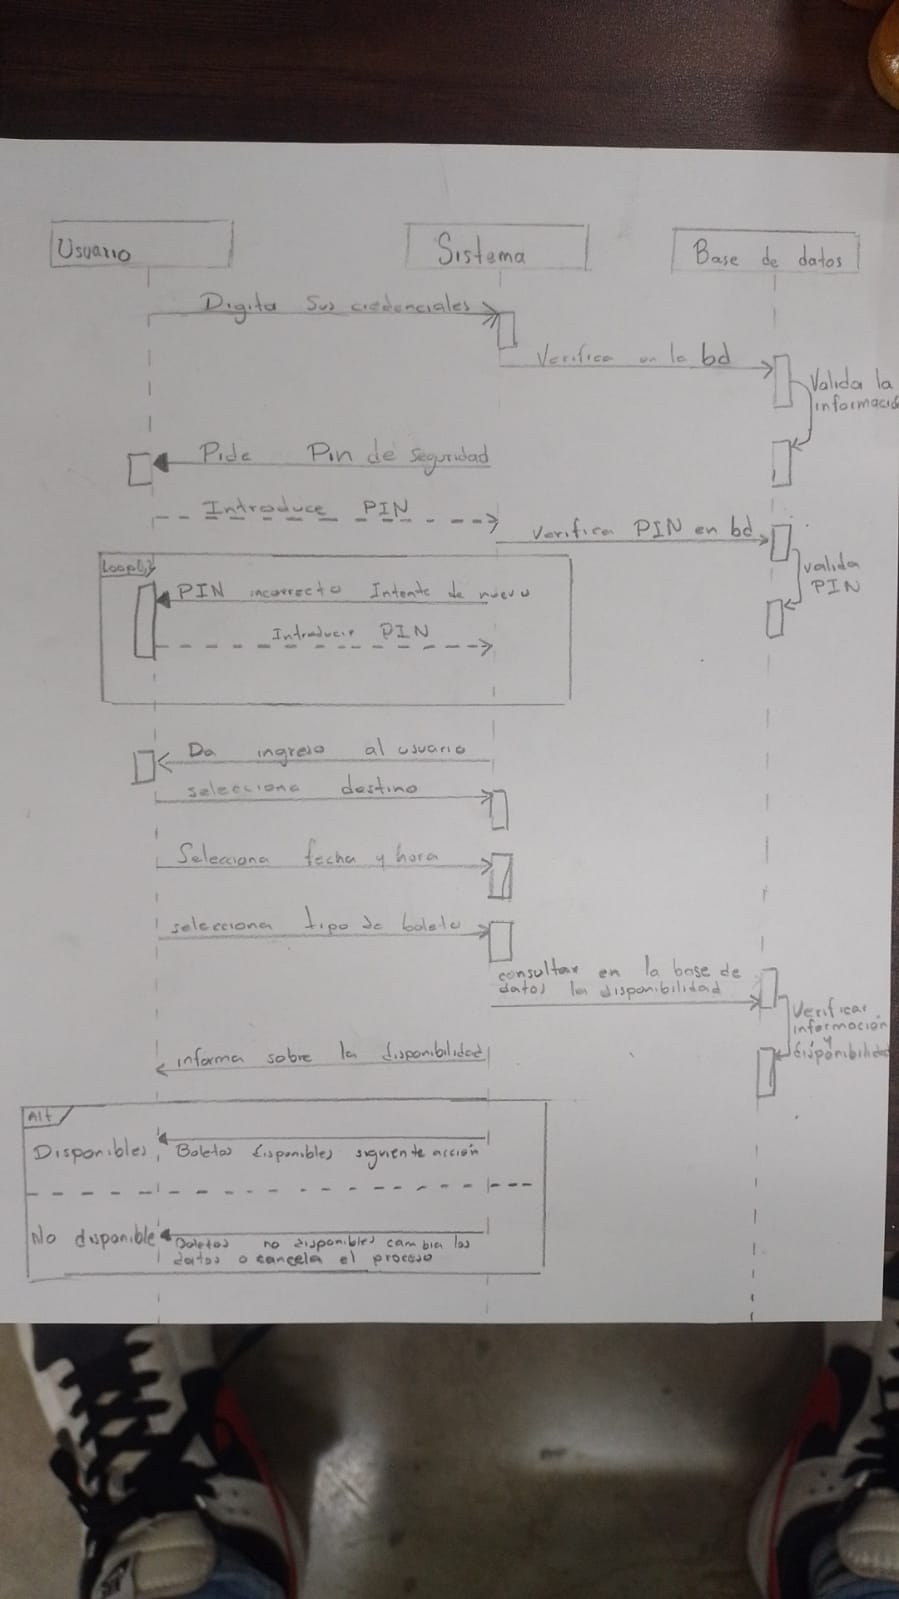 Usuario
Sistema
Base de datos
Digita sus credenciales
Verifica en la bd
Valida la
informació
Pide Pin de seguridad
Introduce PIN
verifica PIN en bd
valida
PIN
PIN incorrecto Intente de nuevo
Introducir PIN
Da ingreso al usuario
selecciona destino
Selecciona fecha y hora
selecciona tipo de boleto
consultar en la base de
datos la disponibilidad
Verificar
información
y
disponibilidad
informa sobre la disponibilidad
Alt
Disponibles
Boletos disponibles siguiente acción
No disponible
Boletos no disponibles cambia los
datos o cancela el proceso